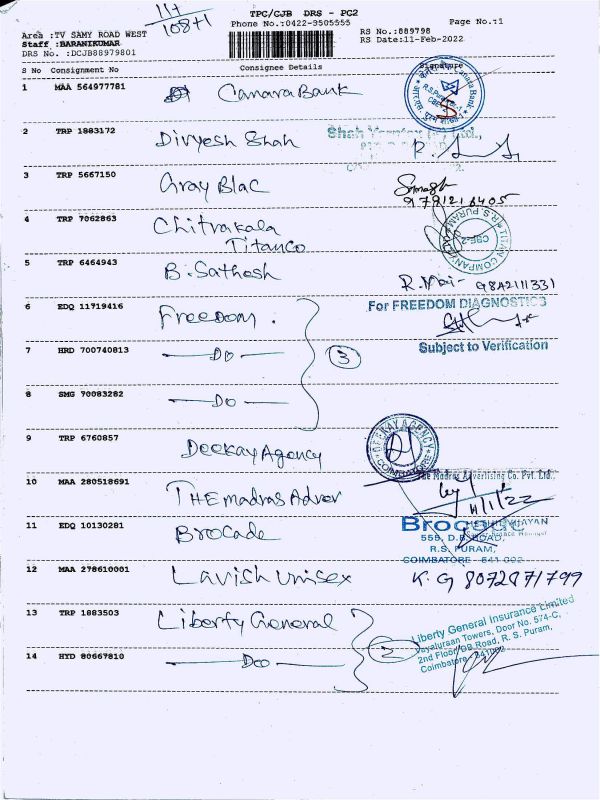 11+
108+1
TPC/CJB DRS - PC2
Phone No.:0422-3505555
Page No.:1
Area :TV SAMY ROAD WEST
Staff :BARANIKUMAR
DRS No. :DCJB88979801
RS No.:889798
RS Date:11-Feb-2022
S No Consignment No Consignee Details Signature
1 MAA 564977781 Canara Bank
2 TRP 1883172 Divyesh Shah
3 TRP 5667150 Gray Blac
4 TRP 7062863 Chitrakala
Titanco
TITAN COMPANY R.S PURAM CBE-2
5 TRP 6464943 B. Sathosh
9842111331
6 EDQ 11719416 Freedom.
For FREEDOM DIAGNOSTICS
7 HRD 700740813 Do 3
Subject to Verification
8 SMG 70083282 Do
9 TRP 6760857 Deekay Agency
DEEKAY AGENCY COIMBATORE
10 MAA 280518691 THE madras Adver
The Madras Advertising Co. Pvt. Ltd.,
11/1/22
11 EDQ 10130281 Brocade
Brocade
559, D.B. ROAD,
R.S. PURAM,
COIMBATORE - 641 002
12 MAA 278610001 Lavish unisex K. G 8072871799
13 TRP 1883503 Liberty General
Liberty General Insurance Limited
Towers, Door No. 574-C,
2nd Floor DB Road, R. S. Puram,
Coimbatore
14 HYD 80667810 Doo 2